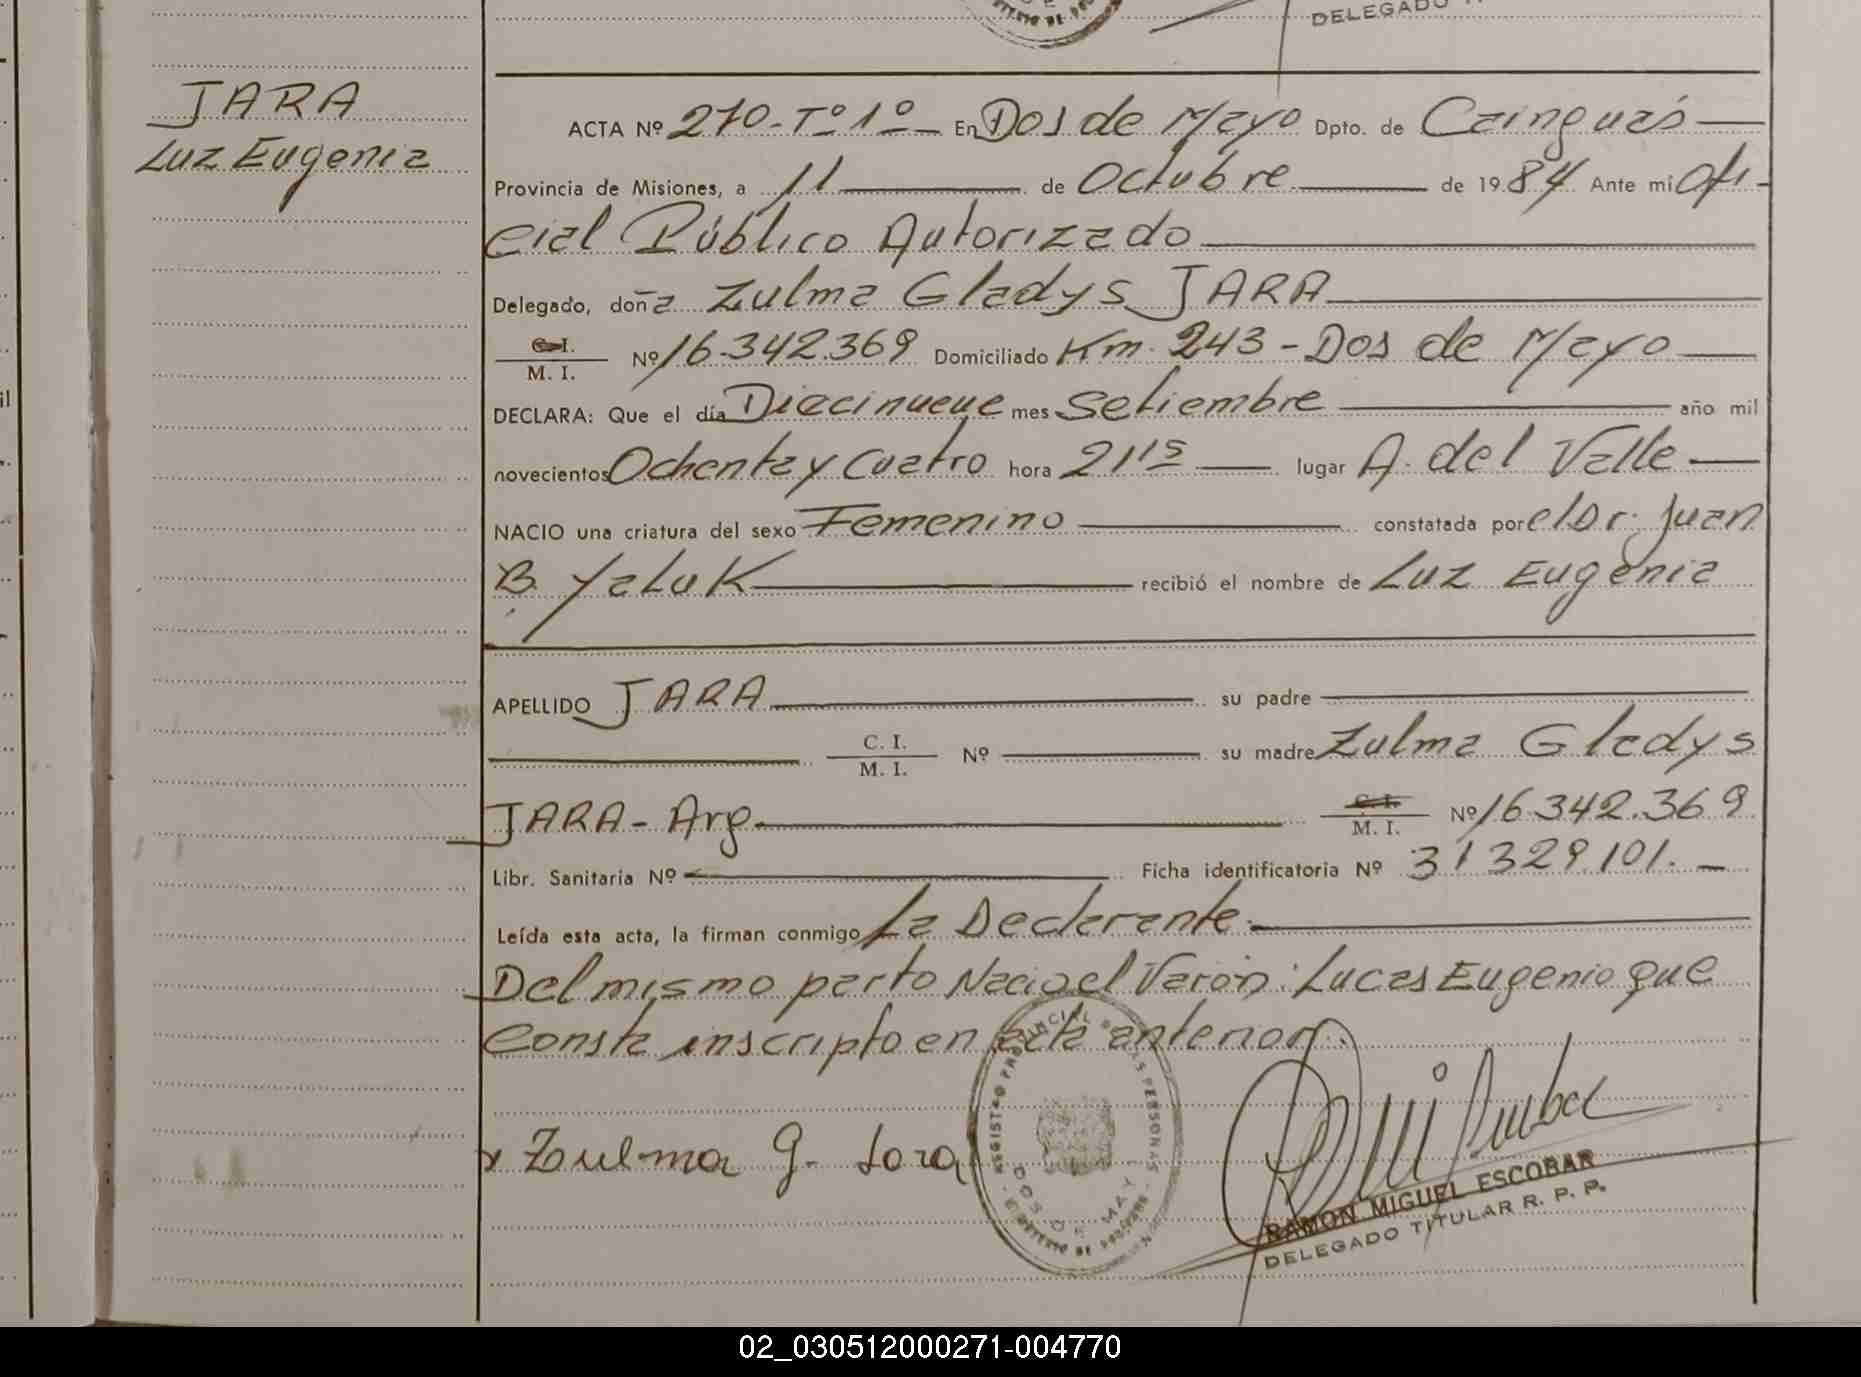 DELEGADO
JARA
Luz Eugenia
ACTA Nº 270-Tº1º En Dos de Mayo Dpto. de Cainguás
Provincia de Misiones, a 11 de Octubre de 1984 Ante mi Ofi-
cial Público Autorizado
Delegado, doña Zulma Gladys JARA
C.I.
M. I. Nº 16.342.369 Domiciliado Km. 243 - Dos de Mayo
DECLARA: Que el día Diecinueve mes Setiembre año mil
novecientos Ochenta y Cuatro hora 21 15 lugar A. del Valle
NACIO una criatura del sexo Femenino constatada por el Dr. Juan
B. Yaluk recibió el nombre de Luz Eugenia
APELLIDO JARA su padre
C. I.
M. I. Nº su madre Zulma Gladys
JARA - Arg. C. I.
M. I. Nº 16.342.369
Libr. Sanitaria Nº Ficha identificatoria Nº 31.329.101.
Leída esta acta, la firman conmigo La Declarante.
Del mismo parto Nacio el Varón: Lucas Eugenio que
Consta inscripto en acta anterior.
x Zulma G. Jara
REGISTRO PROVINCIAL DE LAS PERSONAS
DOS DE MAYO
RAMON MIGUEL ESCOBAR
DELEGADO TITULAR R. P. P.
02_030512000271-004770